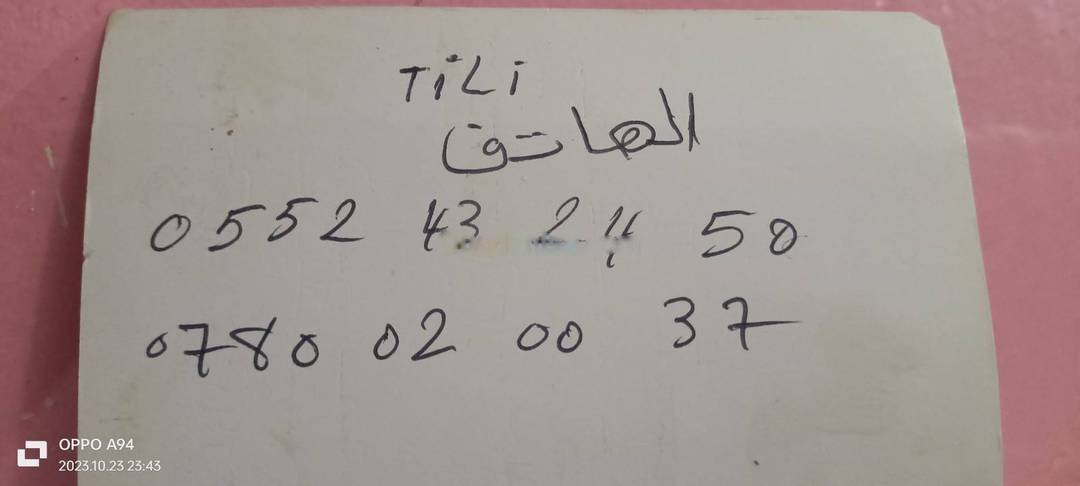 TiLi
الهاتف
0552 43 24 50
0780 02 00 37
OPPO A94
2023.10.23 23:43